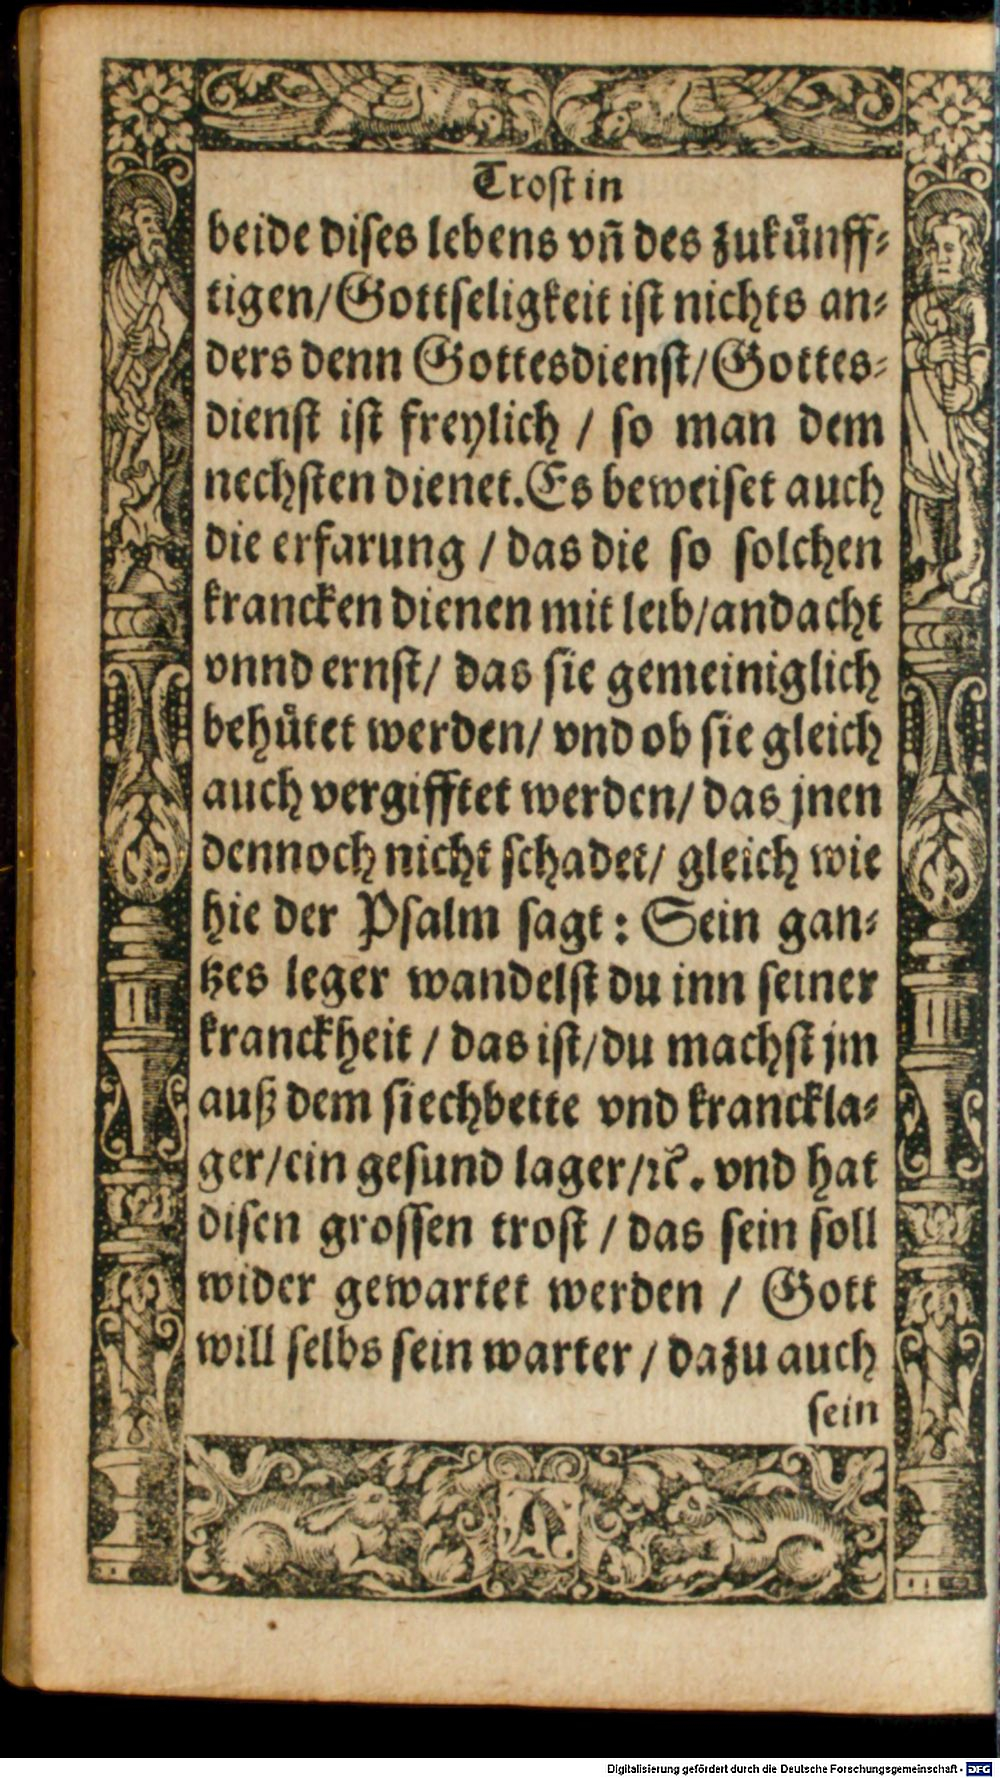 Trost in
beide dises lebens vñ des zukuͤnff⸗
tigen/Gottseligkeit ist nichts an⸗
ders denn Gottesdienst/Gottes⸗
dienst ist freylich / so man dem
nechsten dienet.Es beweiset auch
die erfarung / das die so solchen
krancken dienen mit leib/andacht
vnnd ernst/ das sie gemeiniglich
behuͤtet werden/ vnd ob sie gleich
auch vergifftet werden/ das jnen
dennoch nicht schadet/ gleich wie
hie der Psalm sagt: Sein gan⸗
tzes leger wandelst du inn seiner
kranckheit / das ist/du machst jm
auß dem siechbette vnd kranckla⸗
ger/ein gesund lager/ꝛc̃. vnd hat
disen grossen trost / das sein soll
wider gewartet werden / Gott
will selbs sein warter / dazu auch
sein
Digitalisierung gefördert durch die Deutsche Forschungsgemeinschaft - DFG